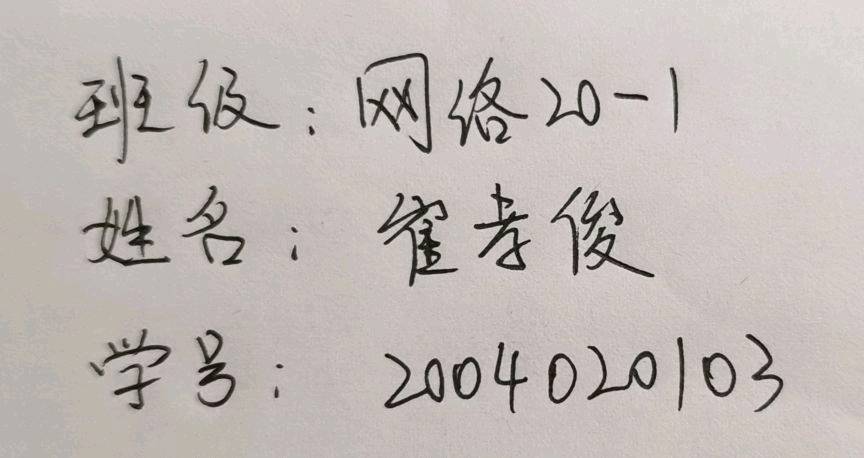 班级：网络20-1
姓名：崔孝俊
学号：2004020103